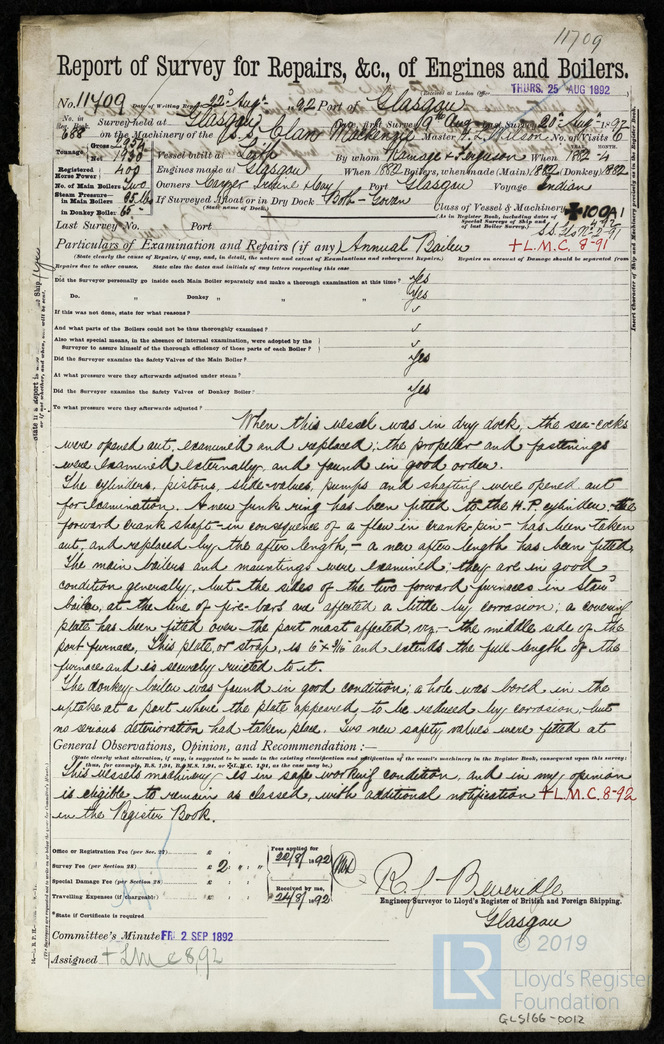 11709
Report of Survey for Repairs, &c., of Engines and Boilers.
(Received at London Office THURS. 25 AUG 1892
No. 11709 Date of Writing Report 22d Augt. 1892 Port of Glasgow
No. in Reg. Book. 688 Survey held at Glasgow First Survey 9th Aug Last Survey 20th Augt 1892
on the Machinery of the S.S. Clan Mackenzie Master F. L. Wilson No. of Visits 6
Tonnage Gross 2954 Net 1930
Vessel built at Leith By whom Ramage & Ferguson When 1882-4
Registered Horse Power 400
Engines made at Glasgow When 1882 Boilers, when made (Main) 1882 (Donkey) 1882
No. of Main Boilers Two
Owners Cayzer Irvine & Coy Port Glasgow Voyage Indian
Steam Pressure in Main Boilers 85 lb
in Donkey Boiler 65
If Surveyed Afloat or in Dry Dock Both - Govan
(State name of Dock.)
Class of Vessel & Machinery 100A1
(As in Register Book, including dates of Special Surveys of Ship and of last Boiler Survey.)
Last Survey No. Port
Particulars of Examination and Repairs (if any) Annual Boiler + L.M.C. 8-91
(State clearly the cause of Repairs, if any, and, in detail, the nature and extent of Examinations and subsequent Repairs.) Repairs on account of Damage should be separated from
Repairs due to other causes. State also the dates and initials of any letters respecting this case
Did the Surveyor personally go inside each Main Boiler separately and make a thorough examination at this time? Yes
Do. Donkey " " " Yes
If this was not done, state for what reasons?
And what parts of the Boilers could not be thus thoroughly examined?
Also what special means, in the absence of internal examination, were adopted by the
Surveyor to assure himself of the thorough efficiency of those parts of each Boiler?
Did the Surveyor examine the Safety Valves of the Main Boiler? Yes
At what pressure were they afterwards adjusted under steam?
Did the Surveyor examine the Safety Valves of Donkey Boiler? Yes
To what pressure were they afterwards adjusted?
When this vessel was in dry dock, the sea-cocks
were opened out, examined and replaced; the propeller and fastenings
were examined externally, and found in good order.
The cylinders, pistons, slide-valves, pumps and shafting were opened out
for examination. A new junk ring has been fitted to the H.P. cylinder, the
forward crank shaft - in consequence of a flaw in crank-pin - has been taken
out, and replaced by the after length, - a new after length has been fitted.
The main boilers and mountings were examined; they are in good
condition generally, but the sides of the two forward furnaces in Starbd
boiler, at the line of fire-bars are affected a little by corrosion; a covering
plate has been fitted over the part most affected, viz. - the middle side of the
port furnace. This plate, or strap, is 6 x 7/16 and extends the full length of the
furnace and is securely riveted to it.
The donkey boiler was found in good condition; a hole was bored in the
uptake at a part where the plate appeared to be reduced by corrosion, but
no serious deterioration had taken place. Two new safety valves were fitted at
General Observations, Opinion, and Recommendation :—
(State clearly what alteration, if any, is suggested to be made in the existing classification and notification of the vessel's machinery in the Register Book, consequent upon this survey;
thus, for example, B.S. 1,91, B.&M.S. 1,91, or L.M.C. 1,91, as the case may be.)
This vessels machinery is in safe working condition, and in my opinion
is eligible to remain as classed, with additional notification + L.M.C. 8-92
in the Register Book.
Office or Registration Fee (per Sec. 27) £
Survey Fee (per Section 28) £ 2
Special Damage Fee (per Section 28) £
Travelling Expenses (if chargeable) £
Fees applied for 22/8/1892
Received by me, 24/8/1892
*State if Certificate is required
R. J. Beveridge
Engineer Surveyor to Lloyd's Register of British and Foreign Shipping.
Glasgow
Committee's Minute FRI 2 SEP 1892
Assigned + LMC 8.92
LR
© 2019
Lloyd's Register
Foundation
GLS166-0012